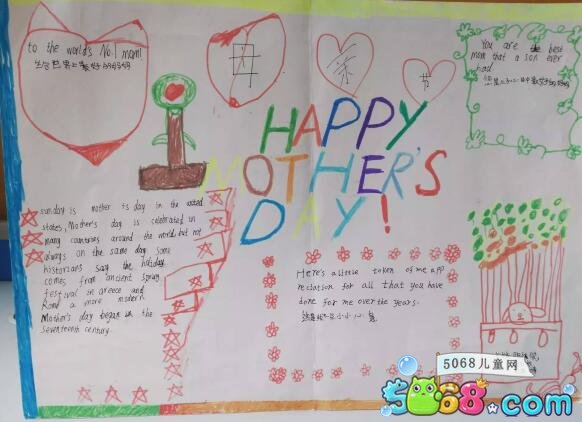 to the world's No.1 mom!
母
亲
节
You are the best
mom that a son ever
had.
HAPPY
MOTHER'S
DAY!
sunday is mother is day in the
states, Mother's day is celebrated in
many countries around the world but not
always on the same day some
historians say the holiday
comes from ancient spring
festival in Greece and
Rome a more modern
Mother's day began in the
seventeenth century.
Here's a little token of me app
reciation for all that you have
done for me over the years.
5068儿童网
5068.com